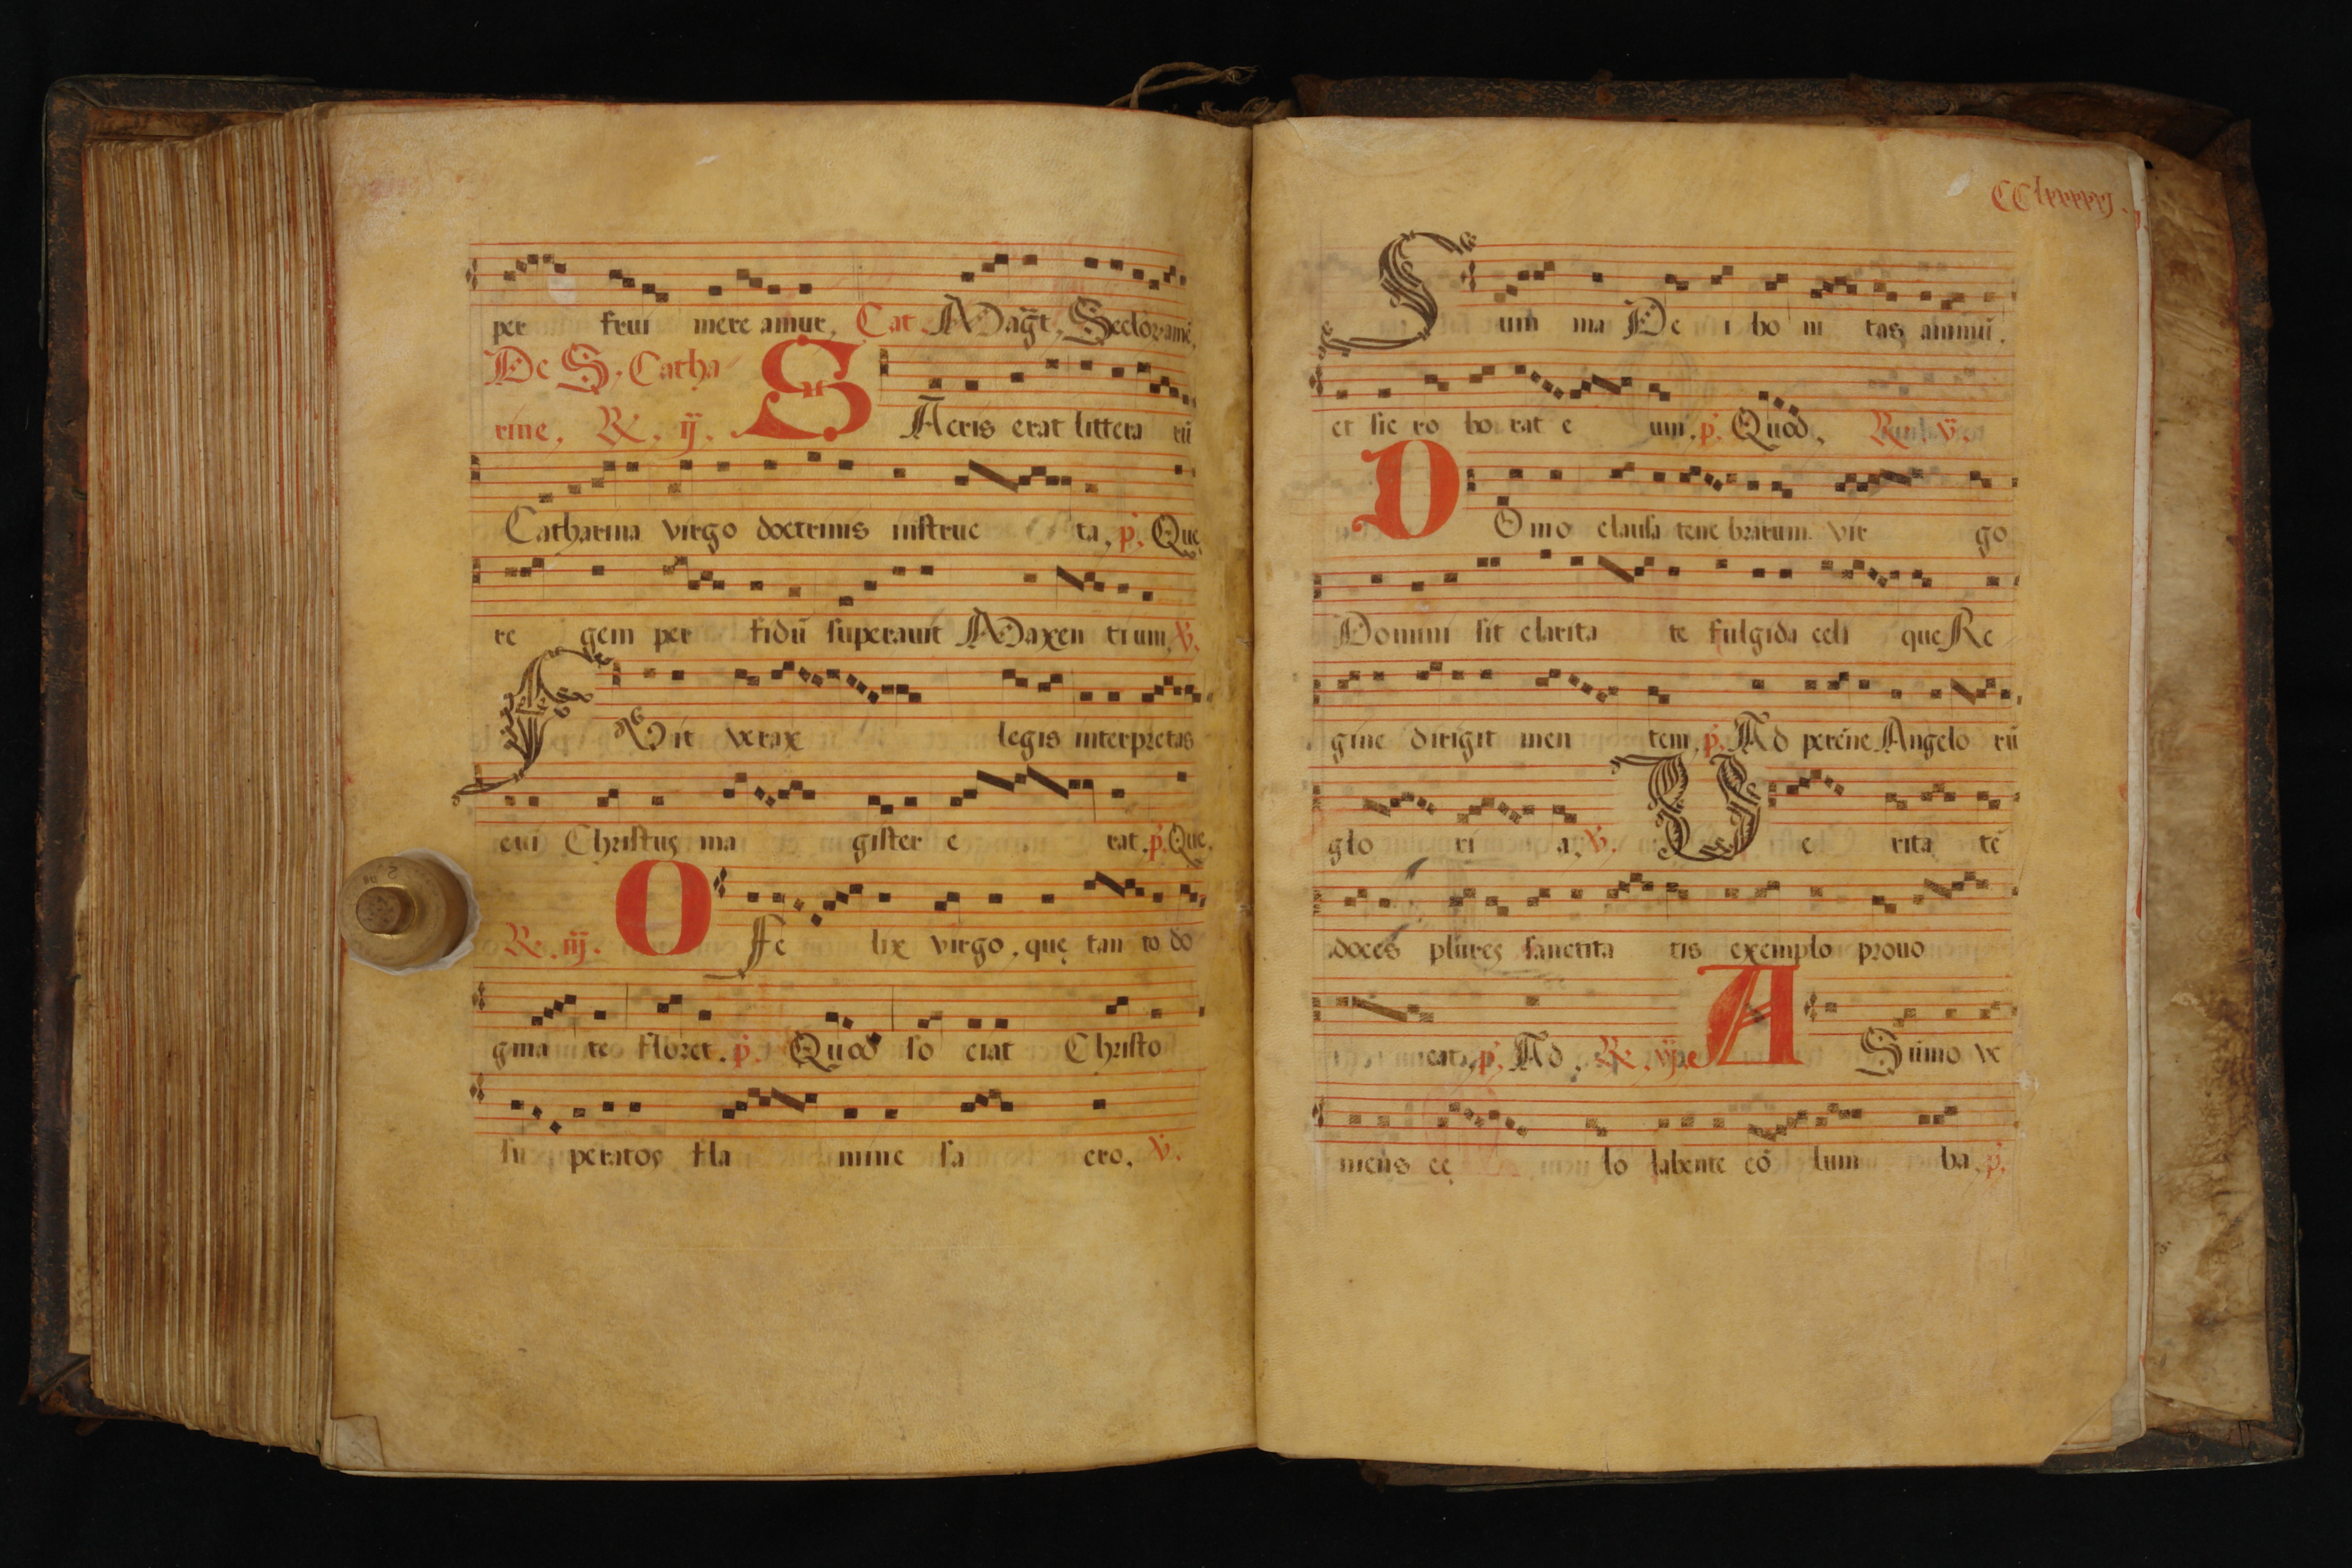 per frui mere amur, Cat. Mag̃t, Seclorv amē,
De S. Catha
rine, R. ij. SAcris erat littera rū
Catharina virgo doctrinis instruc ta, p. Que
re gem per fidū superauit Maxen tium, V.
A Dit verax legis interpretas
cui Christus ma gister e rat. p. Que.
R. iij. O Fe lix virgo, que tan to do
gma te floret. p. Quod so ciat Christo
su peratos fla mine sa cro, V.
CClxxxxj.
Sum ma De i bo ni tas animū.
et sic ro bo rat e um, p. Quod, R. V.
DOmo clausa tene brarum vir go
Domini sit clarita te fulgida celi que Re
gine dirigit men tem, p. Ad perēne Angelo rū
glo ri a, V. Ve rita tē
doces plures sanctita tis exemplo prouo
cat, p. Ad, R. vj. A Sūmo ve
niens ce lo labente co lum ba, p.